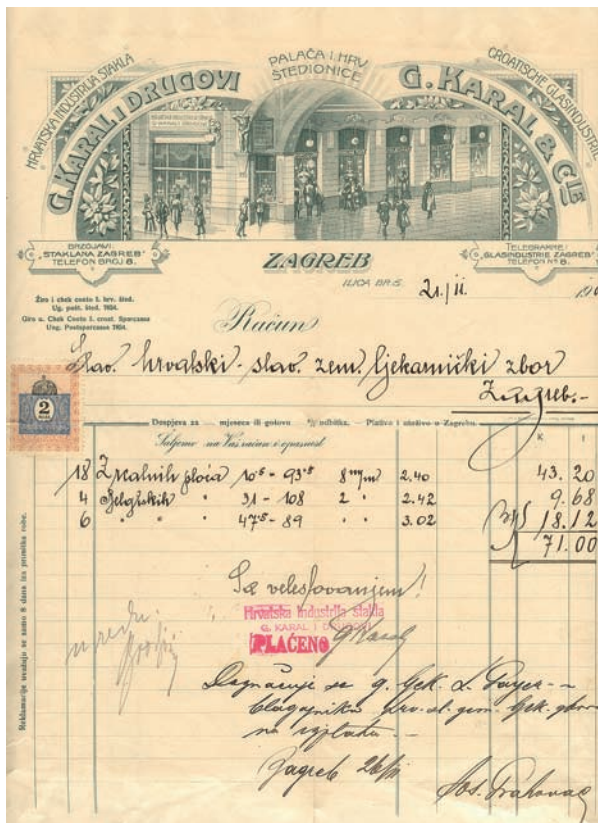 HRVATSKA INDUSTRIJA STAKLA
G. KARAL I DRUGOVI
PALAČA I. HRV.
ŠTEDIONICE
CROATISCHE GLASINDUSTRIE
G. KARAL & CIE
BRZOJAVI:
„STAKLANA ZAGREB"
TELEFON BROJ 8.
ZAGREB
TELEGRAMME:
„GLASINDUSTRIE ZAGREB"
TELEFON No 8.
ILICA BR. 5.
21./II. 19
Žiro i chek conto I. hrv. šted.
Ug. pošt. šted. 7604.
Giro u. Chek Conto I. croat. Sparcassa
Ung. Postsparcasse 7604.
Račun
Slav. hrvatski-slav. zem. ljekarnički zbor
Zagreb.-
2
Dospjeva za mjeseca ili gotovo % odbitka. Plativo i utuživo u Zagrebu.
Šaljemo na Vaš račun i opasnost
K
18 Zrcalnih ploča 10·5 - 93·5 8 m/m 2.40 43.20
4 Belgijskih " 31 - 108 2 " 2.42 9.68
6 " " 47·5 - 89 " " 3.02 18.12
71.00
Sa veleštovanjem!
Hrvatska industrija stakla
G. KARAL I DRUGOVI
PLAĆENO
G Karal
u redu
Doznačuje se g. ljek.
blagajniku hrv. sl. zem. ljek. zbora
na isplatu.-
Zagreb 26/II
Reklamacije uvažuju se samo 8 dana iza primitka robe.